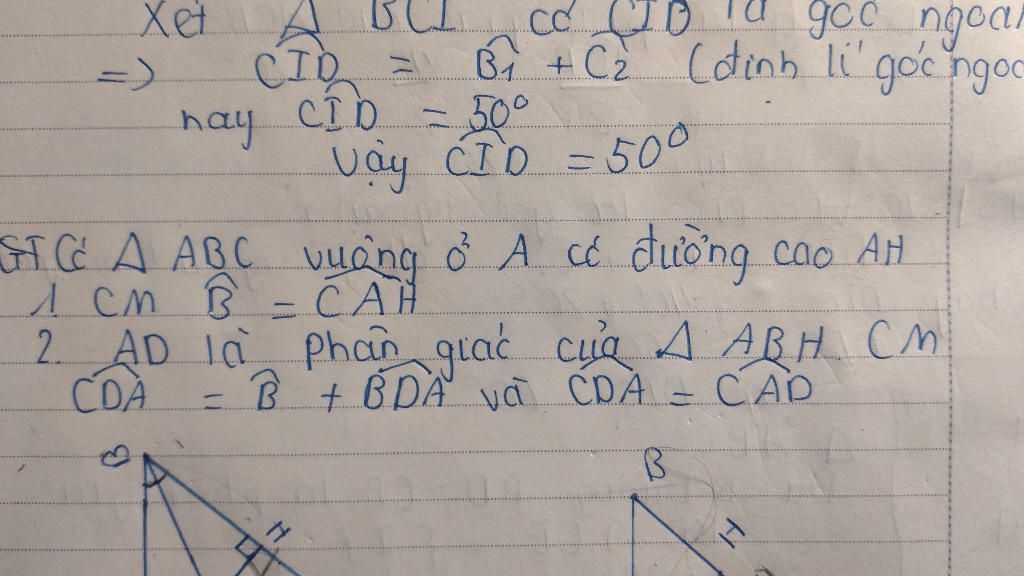 Xét Δ BCI có CID là góc ngoài
=> CID = B1 + C2 (định lí góc ngoà
hay CID = 50°
Vậy CID = 50°
GT Có Δ ABC vuông ở A có đường cao AH
1 CM B = CAH
2. AD là phân giác của Δ ABH. CM
CDA = B + BDA và CDA = CAD
B
H
B
H